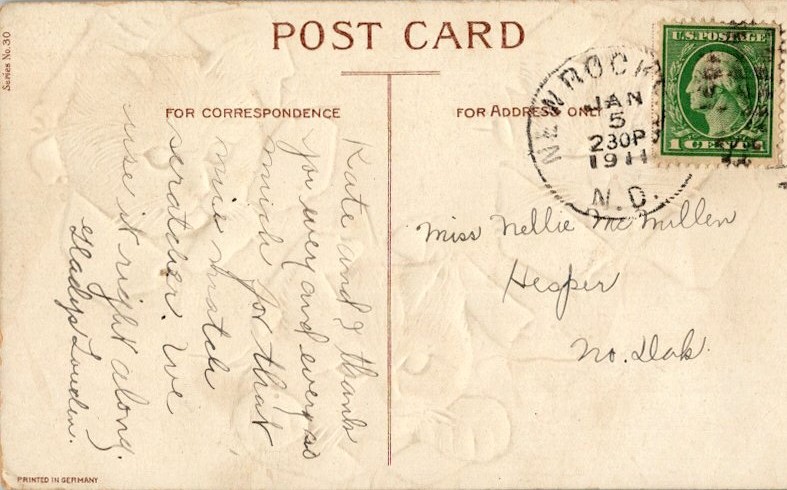 Series No. 30
POST CARD
FOR CORRESPONDENCE
FOR ADDRESS ONLY
U.S. POSTAGE
1 CENT
NEW ROCK
JAN
5
230P
1911
N.D.
Kate and I thank
you very and every so
much for that
nice match
scratcher. We
use it right along.
Gladys Louden.
Miss Nellie McMillen
Hesper
No. Dak.
PRINTED IN GERMANY